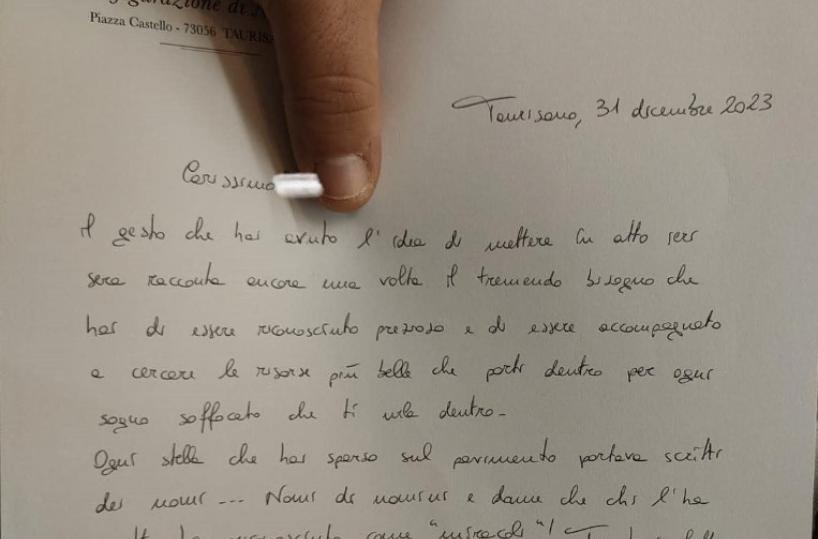 Piazza Castello - 73056 TAURIS
Taurisano, 31 dicembre 2023
Carissimo
Il gesto che hai avuto l'idea di mettere in atto ieri
sera racconta ancora una volta il tremendo bisogno che
hai di essere riconosciuto prezioso e di essere accompagnato
a cercare le risorse più belle che porti dentro per ogni
sogno soffocato che ti urla dentro-
Ogni stella che hai sparso sul pavimento portava scritti
dei nomi... Nomi di uomini e donne che chi l'ha
riconosciuto come "miracoli"!